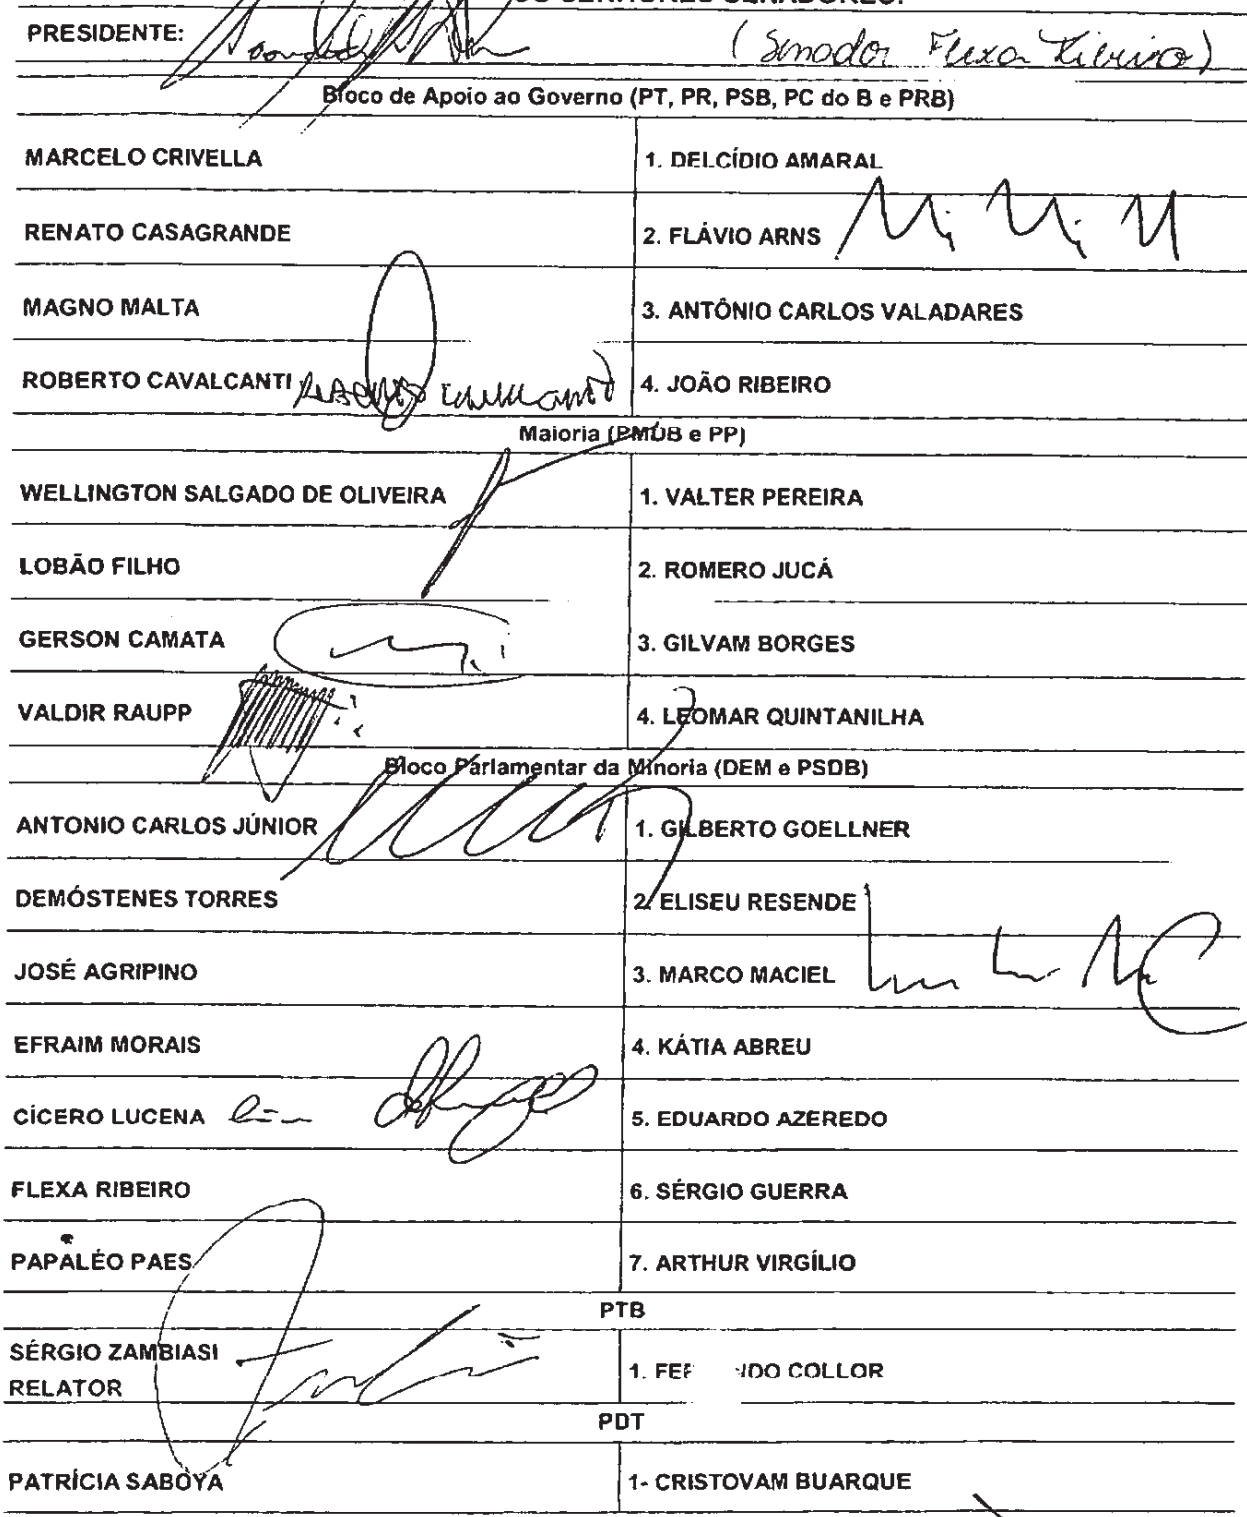 PRESIDENTE: (Senador Flexa Ribeiro)
Bloco de Apoio ao Governo (PT, PR, PSB, PC do B e PRB)
MARCELO CRIVELLA 1. DELCÍDIO AMARAL
RENATO CASAGRANDE 2. FLÁVIO ARNS
MAGNO MALTA 3. ANTÔNIO CARLOS VALADARES
ROBERTO CAVALCANTI 4. JOÃO RIBEIRO
Maioria (PMDB e PP)
WELLINGTON SALGADO DE OLIVEIRA 1. VALTER PEREIRA
LOBÃO FILHO 2. ROMERO JUCÁ
GERSON CAMATA 3. GILVAM BORGES
VALDIR RAUPP 4. LEOMAR QUINTANILHA
Bloco Parlamentar da Minoria (DEM e PSDB)
ANTONIO CARLOS JÚNIOR 1. GILBERTO GOELLNER
DEMÓSTENES TORRES 2. ELISEU RESENDE
JOSÉ AGRIPINO 3. MARCO MACIEL
EFRAIM MORAIS 4. KÁTIA ABREU
CÍCERO LUCENA 5. EDUARDO AZEREDO
FLEXA RIBEIRO 6. SÉRGIO GUERRA
PAPALÉO PAES 7. ARTHUR VIRGÍLIO
PTB
SÉRGIO ZAMBIASI
RELATOR 1. COLLOR
PDT
PATRÍCIA SABOYA 1- CRISTOVAM BUARQUE